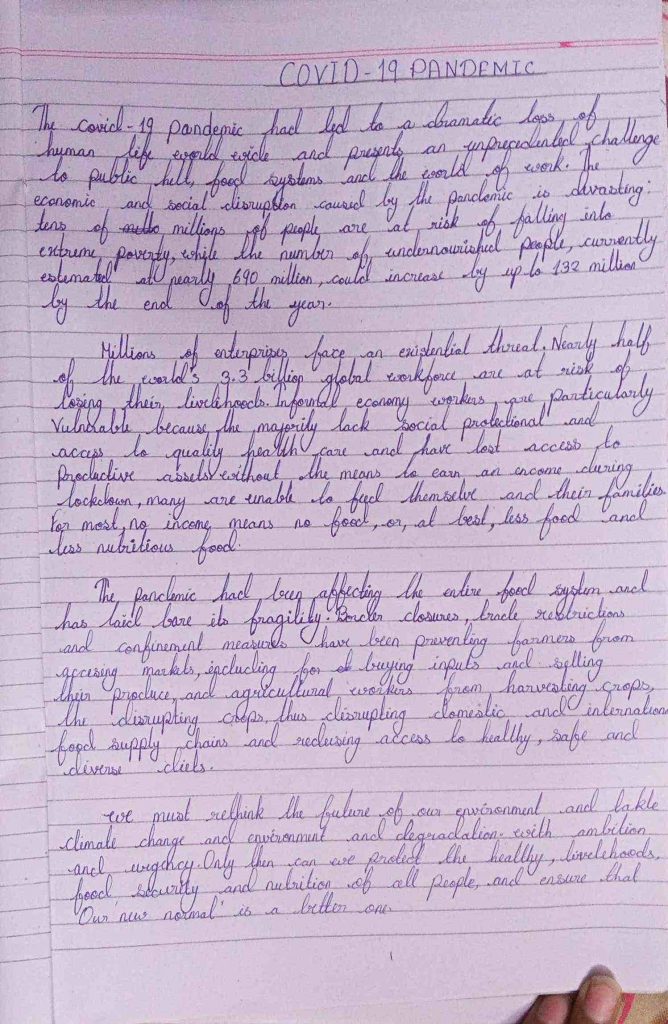 COVID-19 PANDEMIC
The covid-19 pandemic had led to a dramatic loss of
human life world wide and presents an unprecedented challenge
to public helt, food systems and the world of work. The
economic and social disruption caused by the pandemic is divasting:
tens of millions of people are at risk of falling into
extreme poverty, while the number of undernourished people, currently
estemated at nearly 690 million, could increase by up to 132 million
by the end of the year.
Millions of enterprises face an existential threat. Nearly half
of the world's 3.3 billion global workforce are at risk of
losing their livelihoods. Informal economy workers are particularly
Vulnarable because the majority lack social protectional and
access to quality health care and have lost access to
productive assets without the means to earn an encome during
lockdown, many are unable to feed themselve and their families.
For most, no income means no food, or, at best, less food and
less nutritious food.
The pandemic had been affecting the entire food system and
has laid bare its fragility. Border closures, trade restrictions
and confinement measures have been preventing farmers from
accesing markets, including for buying inputs and selling
their produce, and agricultural workers from harvesting crops,
the disrupting crops, thus disrupting domestic and internation
food supply chains and redusing access to healthy, safe and
diverse diets.
we must rethink the future of our environment and takle
climate change and environment and degradation with ambition
and urgency. Only then can we protect the healthy, livelehoods,
food security and nutrition of all people, and ensure that
'Our new normal' is a better one.